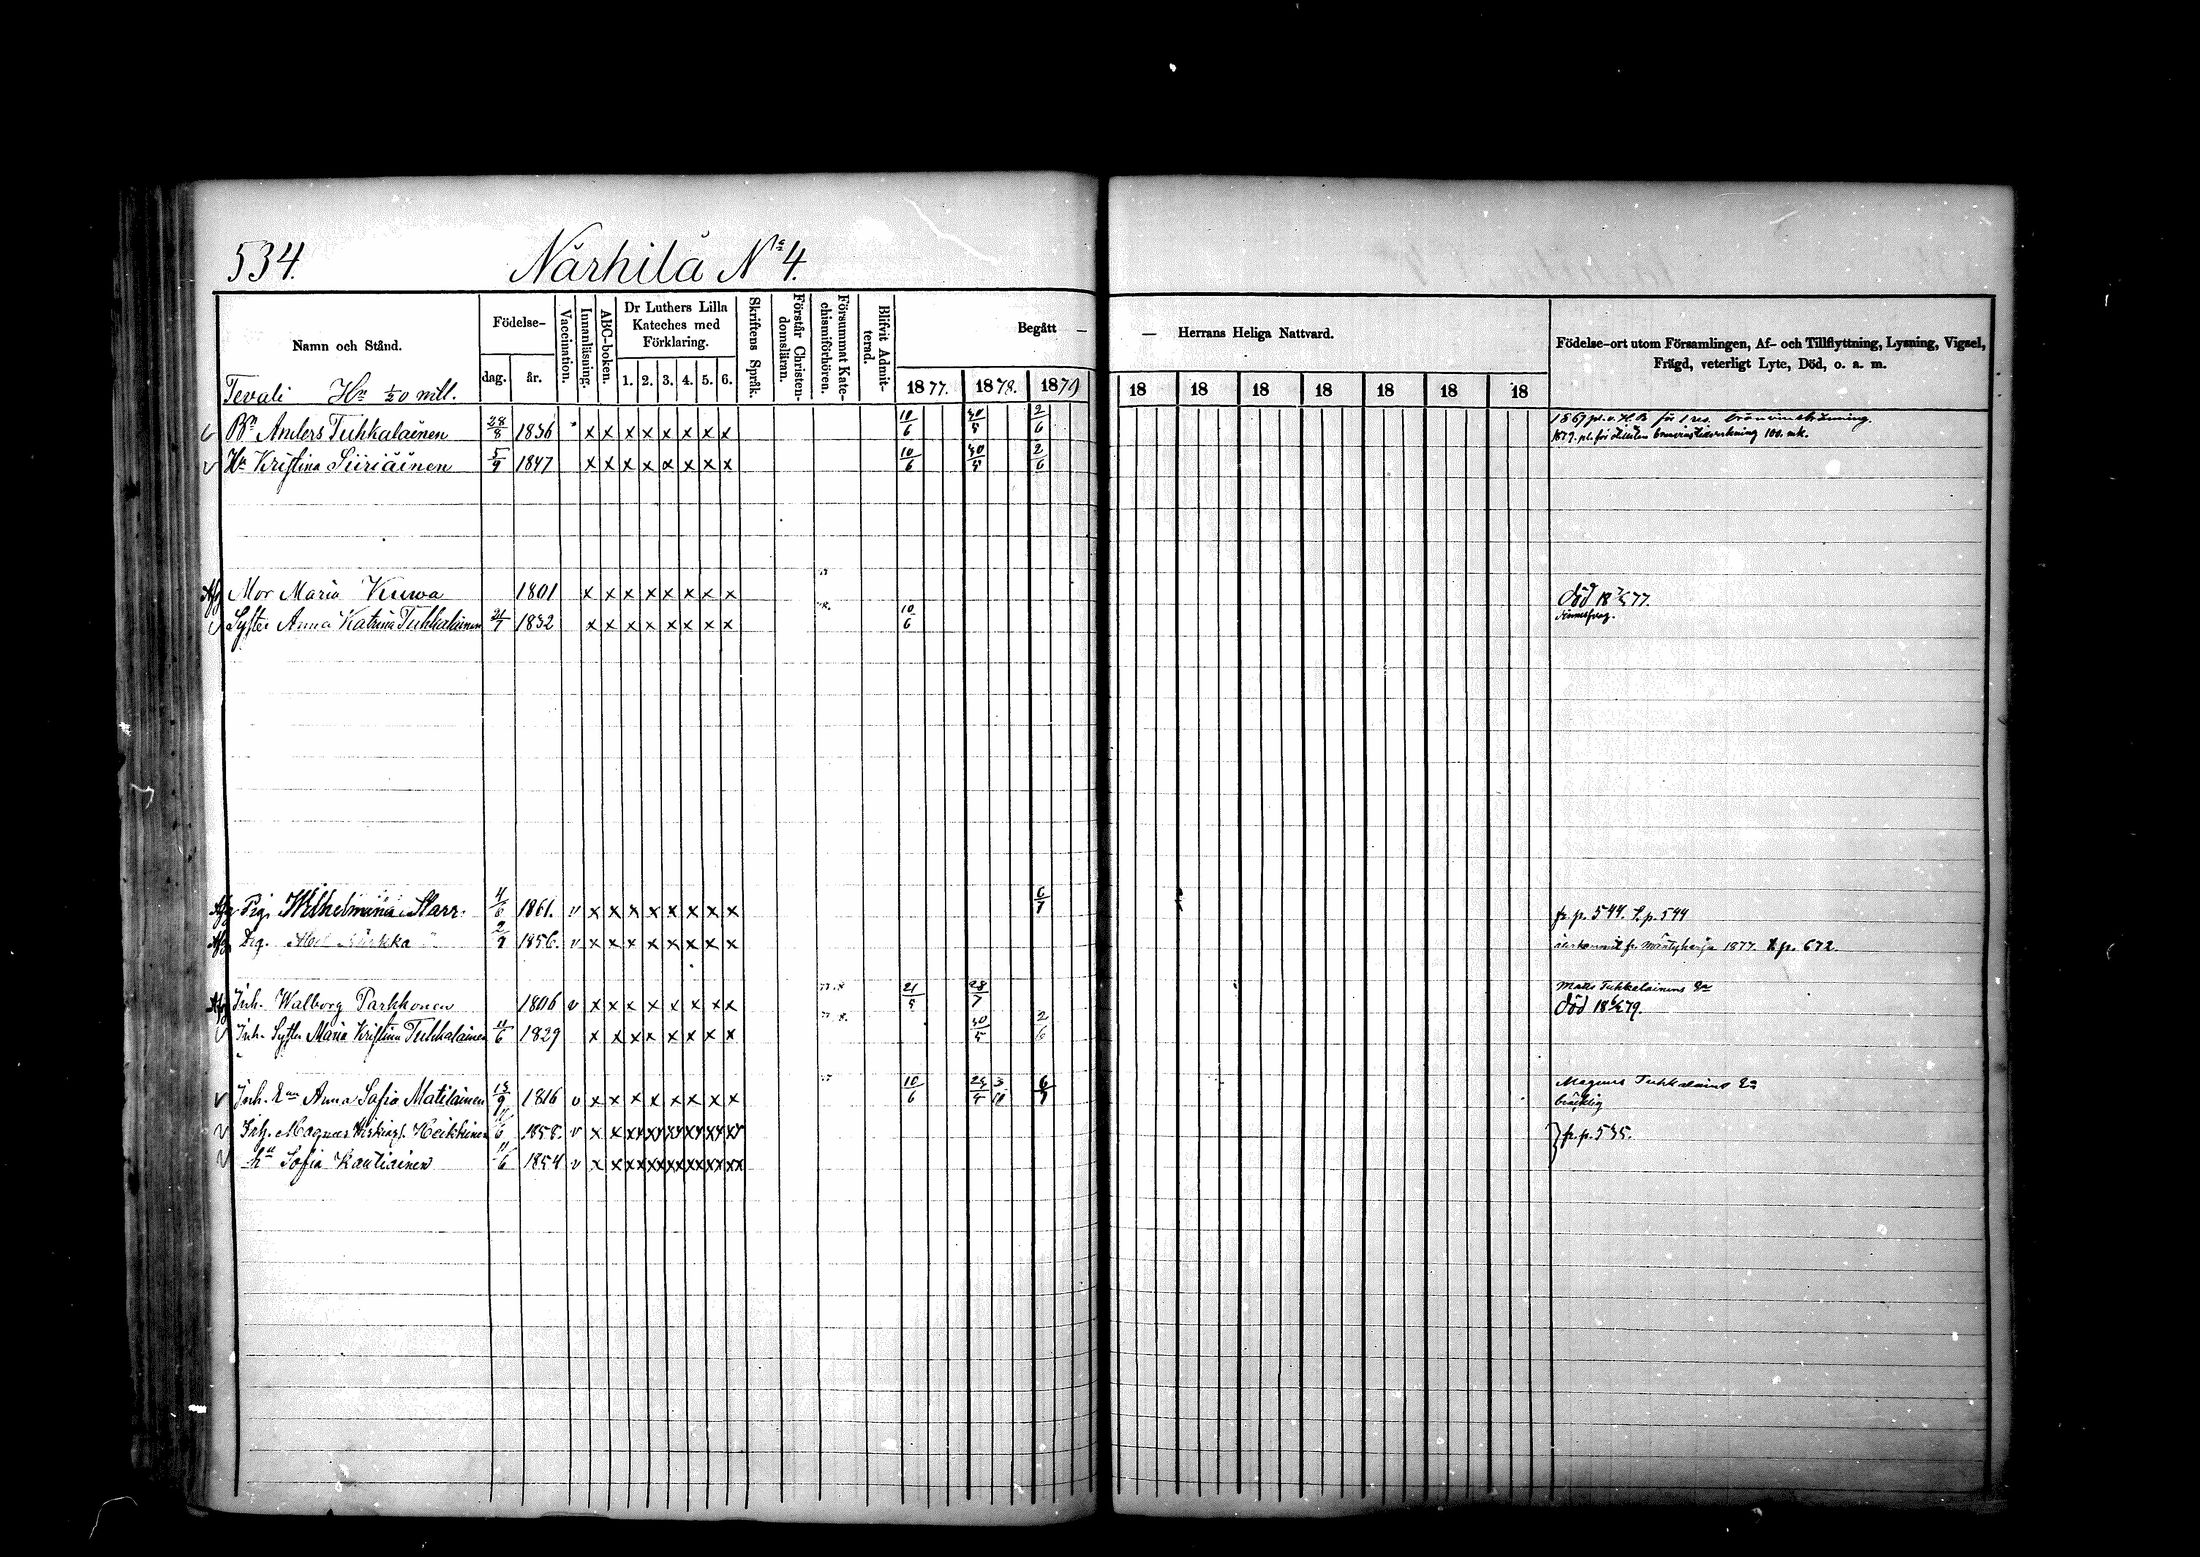 534.
Närhilä No 4.
Namn och Stånd.
Födelse-
dag.
år.
Vaccination.
Innanläsning.
ABC-boken.
Dr Luthers Lilla
Kateches med
Förklaring.
1. 2. 3. 4. 5. 6.
Skriftens Språk.
Förstår Christen-
domsläran.
Försummat Kate-
chismiförhören.
Blifvit Admit-
terad.
Begått —
— Herrans Heliga Nattvard.
1877. 1878. 1879
18 18 18 18 18 18 18
Födelse-ort utom Församlingen, Af- och Tillflyttning, Lysning, Vigsel,
Frägd, veterligt Lyte, Död, o. a. m.
Tevali Hn mtl.
v Bn Anders Tuhkalainen 28/8 1836 x x x x x x x x 10/6 30/5 2/6
v Hu Kristina Siiriäinen 5/9 1847 x x x x x x x x 10/6 30/5 2/6
Afg Mor Maria Kurwa 1801 x x x x x x x x död 77.
v Syster Anna Katrina Tuhkalainen 1832 x x x x x x x x 10/6
Afg Pig. Wilhelmina Marr. 1861. v x x x x x x x x 6/7 fr. p. 544. t. p. 544
Afg Drg. 1856. v x x x x x x x x återkommit fr. Mäntyharju 1877. t p. 672.
Afg Inh. Walborg Parkkonen 1806 v x x x x x x x x 21/5 28/7 Matts Tuhkalainens Ea
död 79.
v Inh. Syster Maria Kristina Tuhkalainen 1829 x x x x x x x x 30/5 2/6
v Inh. Ean Anna Sofia Matilainen 1816 v x x x x x x x x 10/6 Magnus Tuhkalains Ea
bräcklig
v Inh. Magnus Heikkinen 1858. v x x xx xx xx xx xx xx } fr. p. 535.
v hu Sofia Kautiainen 1854 v x x xx xx xx xx xx xx